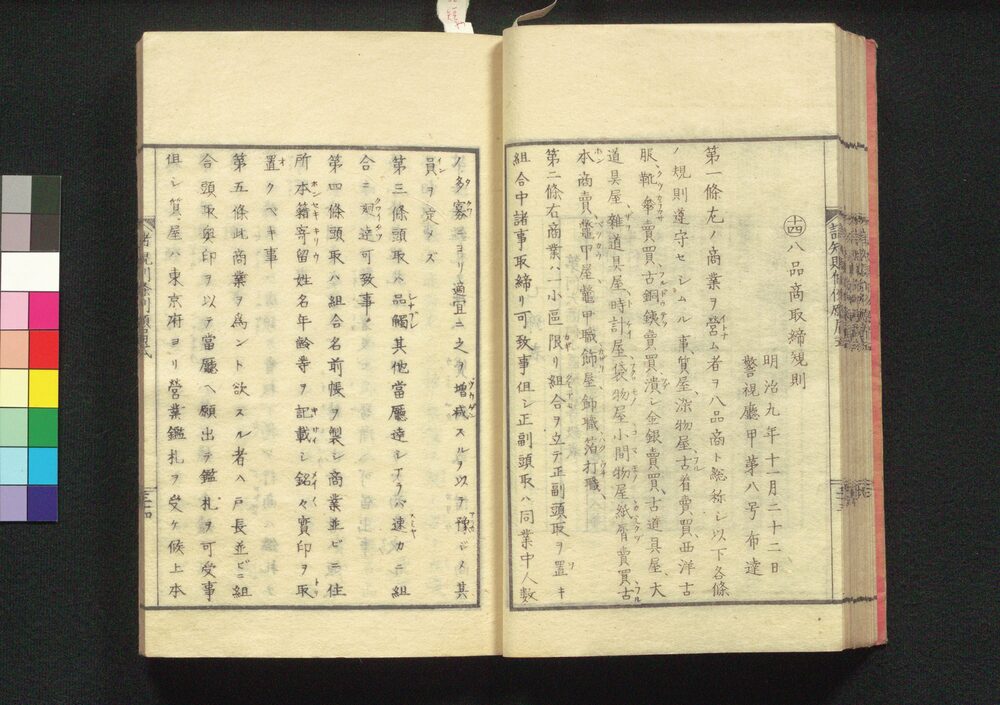 ㊉四八品商取締規則
明治九年十一月二十二日
警視廳甲第八号布達
第一條左ノ商業ヲ營ム者ヲ八品商ト総称シ以下各條
ノ規則遵守セシムル事質屋、染物屋古着賣買、西洋古
服、靴、傘賣買古銅鐵賣買、潰シ金銀賣買、古道具屋、大
道具屋、雑道具屋、時計屋、袋物屋小間物屋紙屑賣買古
本商賣、鼈甲屋鼈甲職飾屋、飾職箔打職、
第二條右商業ハ一小區限リ組合ヲ立テ正副頭取ヲ置キ
組合中諸事取締リ可致事但シ正副頭取ハ同業中人数
ノ多寡ニヨリ適宜ニ之ヲ増減スルヲ以テ豫ジメ其
員ヲ定メズ
第三條頭取ハ品觸其他當廳達シアラハ速カニ組
合ニ廻達可致事。
第四條頭取ハ組合名前帳ヲ製シ商業並ビニ住
所本籍寄留姓名年齢等ヲ記載シ銘々實印ヲ取
置クヘキ事
第五條此商業ヲ爲ント欲スル者ハ戸長並ビニ組
合頭取奥印ヲ以テ當廳ヘ願出テ鑑札ヲ可受事
但シ質屋ハ東京府ヨリ營業鑑札ヲ受ケ候上本